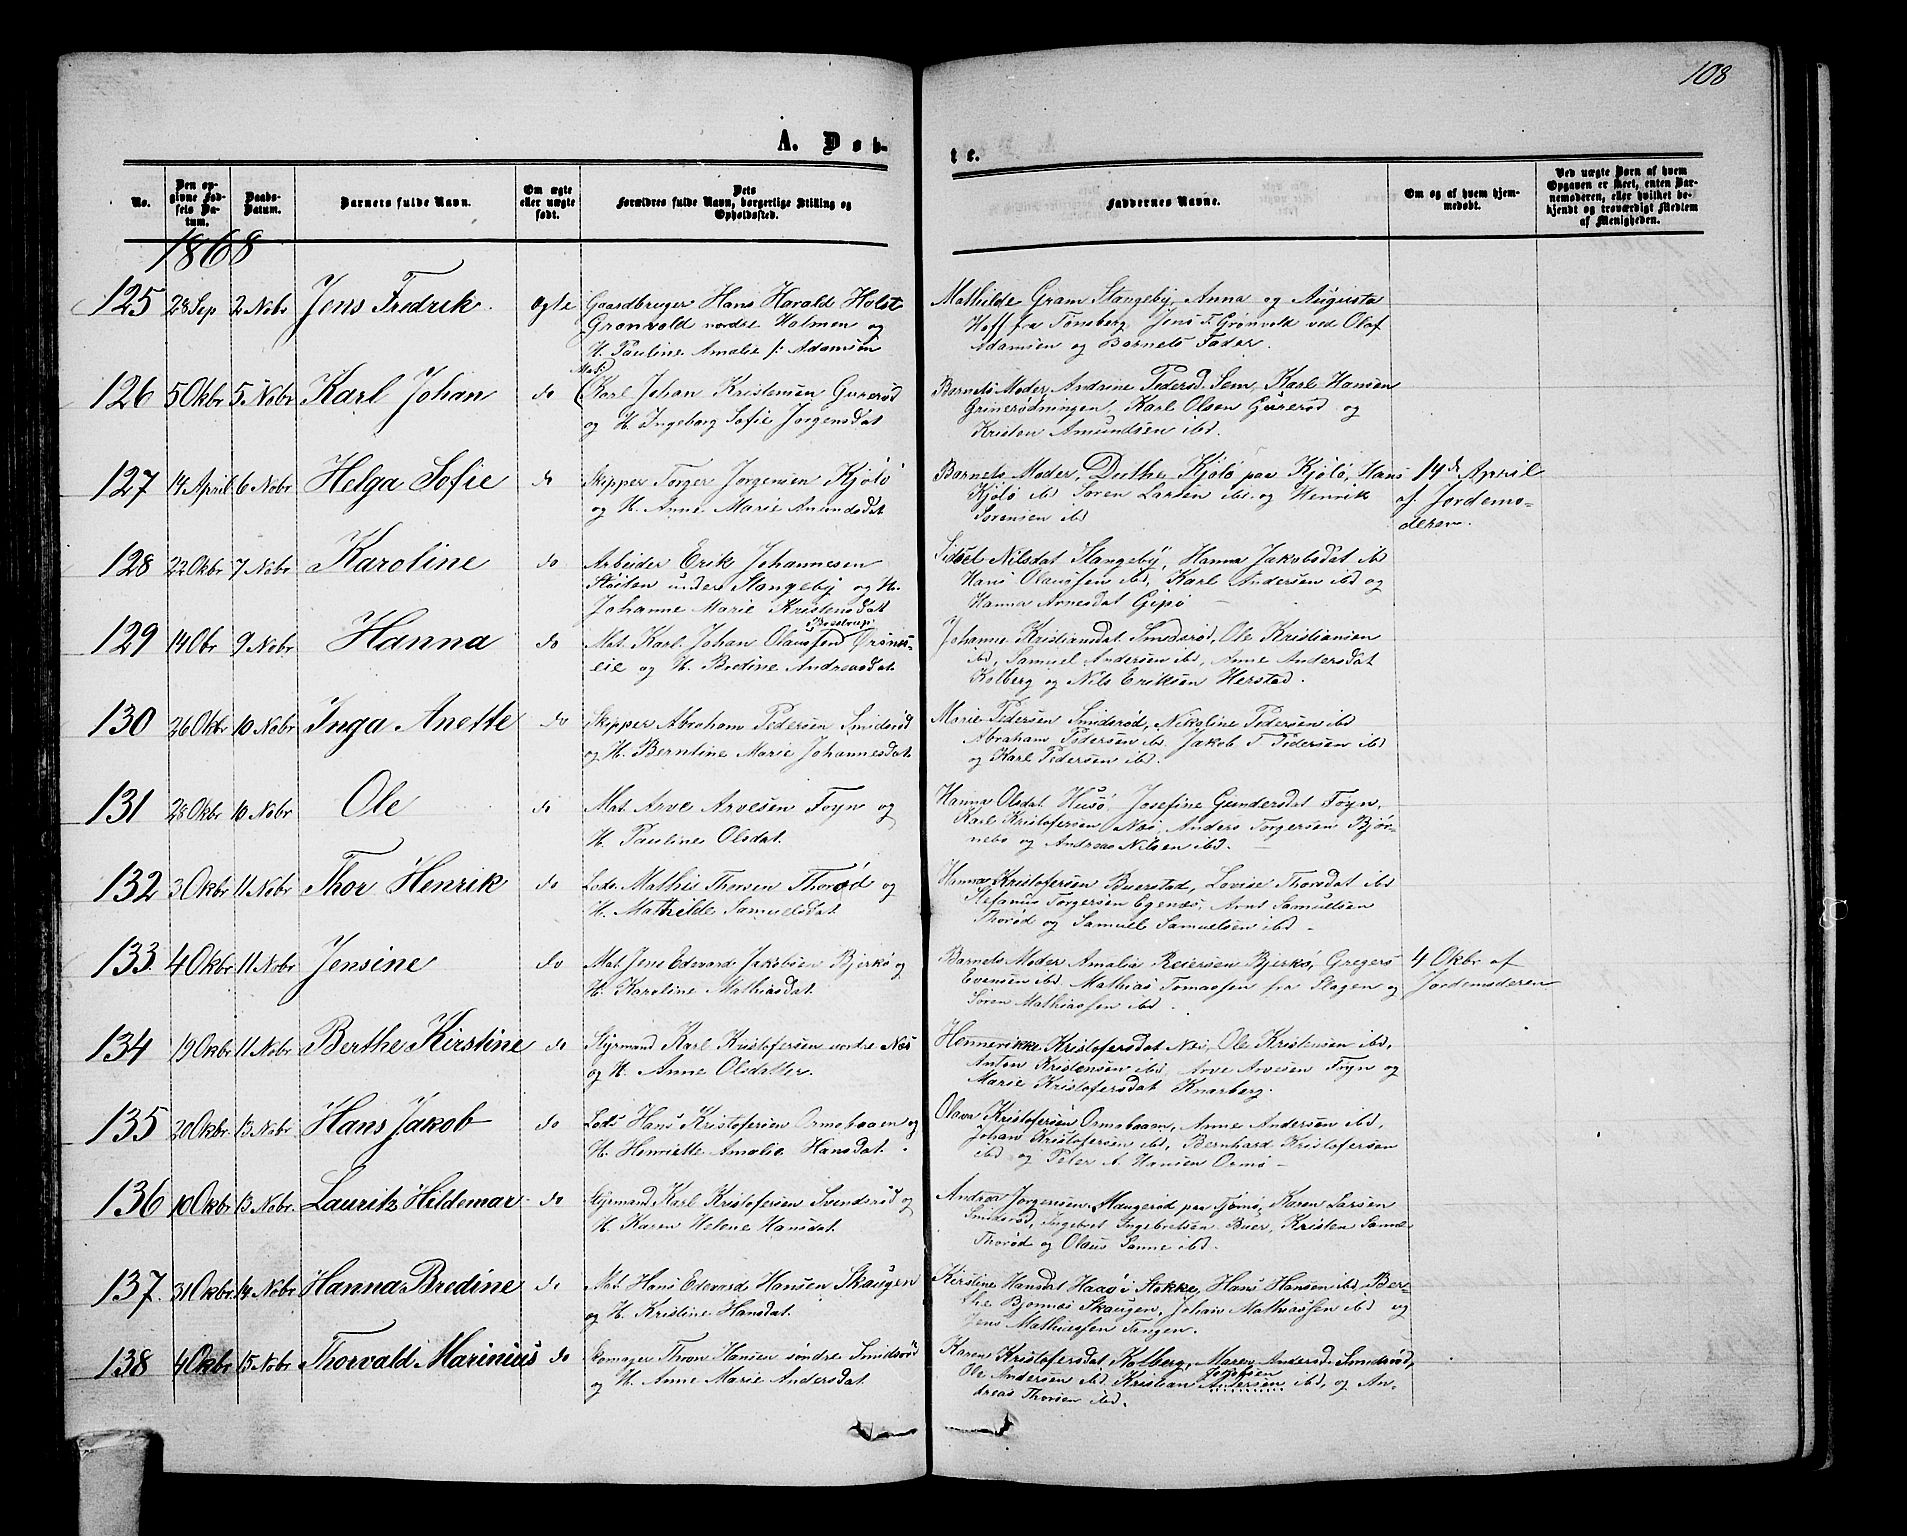 108
A. Døb-
te.
No.
Den op-
givne Fød-
sels Da-
tum.
Daabs-
Datum.
Barnets fulde Navn.
Om ægte
eller uægte
født.
Dets
Forældres fulde Navn, borgerlige Stilling og
Opholdssted.
Faddernes Navne.
Om og af hvem hjem-
medøbt.
Ved uægte Børn af hvem
Opgaven er skeet, enten Bar-
nemoderen, eller hvilket be-
kjendt og troværdigt Medlem
af Menigheden.
1868
125 28 Sep 2 Nobr Jens Fredrik ægte Gaardbruger Hans Harald Holst
Grønvold nordre Holmen og
H. Pauline Amalie f: Adamsen
Mathilde Gram Stangeby, Anna og Augusta
Hoff fra Tønsberg, Jens F. Grønvold ved Olaf
Adamsen og Barnets Fader.
126 5 Okbr 5 Nobr Karl Johan do Mat. Karl Johan Kristensen Gurerød
og H. Ingeborg Sofie Jørgensdat
Barnets Moder, Andrine Pedersd. Sem, Karl Hansen
Grinerødningen, Karl Olsen Gurerød og
Kristen Amundsen ibd.
127 14 April 6 Nobr Helga Sofie do Skipper Torger Jørgensen Kjølø
og H. Anne Marie Amundsdat
Barnets Moder, Dorthe Kjølø paa Kjølø, Hans
Kjølø ibd Søren Larsen ibd. og Henrik
Sørensen ibd
14de April
af Jordemo-
deren.
128 22 Okbr 7 Nobr Karoline do Arbeider Erik Johannesen
Støiten under Stangeby og H.
Johanne Marie Kristensdat
Sidsel Nilsdat Stangeby, Hanna Jakobsdat ibd
Hans Olaussen ibd, Karl Andersen ibd og
Hanna Arnesdat Gipø
129 14 Obr 9 Nobr Hanna do Mat. Karl Johan Olaussen (Bostrup) Ørsnes-
eie og H. Bredine Andreasdat
Johanne Kristiansdat Smidsrød, Ole Kristiansen
ibd, Samuel Andersen ibd, Anne Andersdat
Kolberg og Nils Eriksen Herstad.
130 26 Okbr 10 Nobr Inga Anette do Skipper Abraham Pedersen Smidsrød
og H. Berntine Marie Johannesdat
Marie Pedersen Smidsrød, Nikoline Pedersen ibd
Abraham Pedersen ibd. Jakob T. Pedersen ibd
og Karl Pedersen ibd.
131 28 Okbr 10 Nobr Ole do Mat. Arve Arvesen Foyn og
H. Pauline Olsdat.
Hanna Olsdat Husø, Josefine Gundersdat Foyn,
Karl Kristofersen Næs, Anders Torgersen Bjør-
nebo og Andreas Nilsen ibd.
132 3 Okbr 11 Nobr Thor Henrik do Lods Mathis Thorsen Thorød og
H. Mathilde Samuelsdat.
Hanna Kristofersen Buerstad, Lovise Thorsdat ibd
Stefanus Torgersen Egenæs, Arnt Samuelsen
Thorød og Samuel Samuelsen ibd.
133. 4 Okbr 11 Nobr Jensine do Mat. Jens Edvard Jakobsen Bjerkø og
H. Karoline Mathiasdat.
Barnets Moder Amalia Reiersen Bjerkø, Gregers
Evensen ibd. Mathias Tomassen fra Slagen og
Søren Mathiassen ibd.
4 Okbr af
Jordemoderen
134 19 Okbr 11 Nobr Berthe Kirstine do Styrmand Karl Kristofersen nordre Næs
og H. Anne Olsdatter.
Hennerikke Kristofersdat Næs, Ole Kristensen ibd,
Anton Kristensen ibd. Arve Arvesen Foyn og
Marie Kristofersdat Knarberg.
135 20 Okbr 13 Nobr Hans Jakob do Lods Hans Kristofersen Ormøbaaen og
H. Henriette Amalie Hansdat.
Olava Kristofersen Ormøbaaen, Anne Andersen ibd,
Johan Kristofersen ibd, Bernhard Kristofersen
ibd og Peter A. Hansen Ormø
136 10 Okbr 13 Nobr. Lauritz Hildemar do Styrmand Karl Kristofersen Svendsrød og
H. Karen Helene Hansdat.
Andrea Jørgensen Haugerød paa Tjømø, Karen Larsen
Smidsrød, Ingebret Ingebretsen Buer, Kristen Samu
Thorød og Olaus Sanne ibd.
137. 31 Okbr 14 Nobr Hanna Bredine do Mat. Hans Edvard Hansen Skaugen
og H. Kristine Hansdat.
Kirstine Hansdat Haaø i Stokke, Hans Hansen ibd, Ber-
the Bjønnes Skaugen, Johan Mathiassen ibd og
Jens Mathiassen Tangen.
138 4 Okbr 15 Nobr Thorvald Marinius do Skomager Thron Hansen søndre Smidsrød
og H. Anne Marie Andersdat.
Karen Kristofersdat Kolberg, Maren Andersd. Smidsrød,
Ole Andersen ibd Kristian Andersen Jakobsen ibd, og An-
dreas Thorsen ibd.